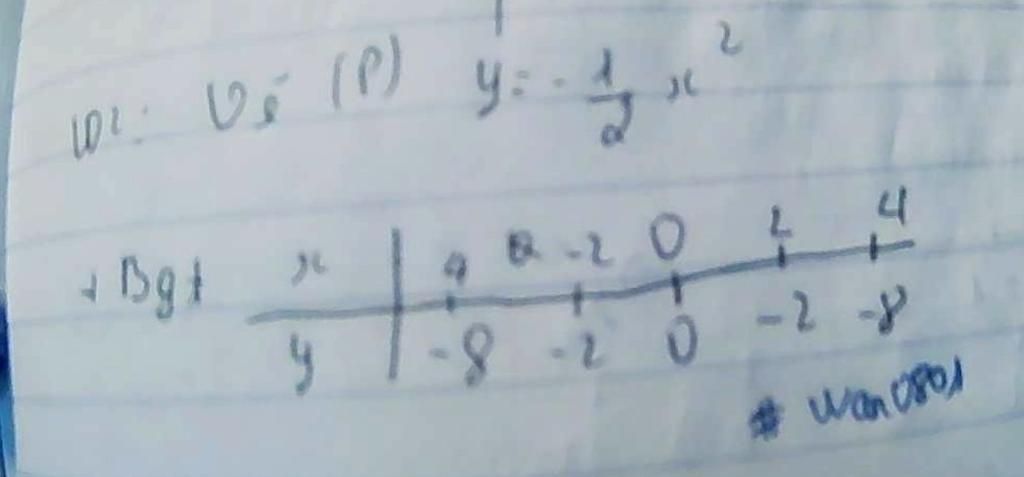 Vẽ (P) y = - 1/2 x²
+ Bgt x | 4 -2 0 2 4
y | -8 -2 0 -2 -8
* wan0801